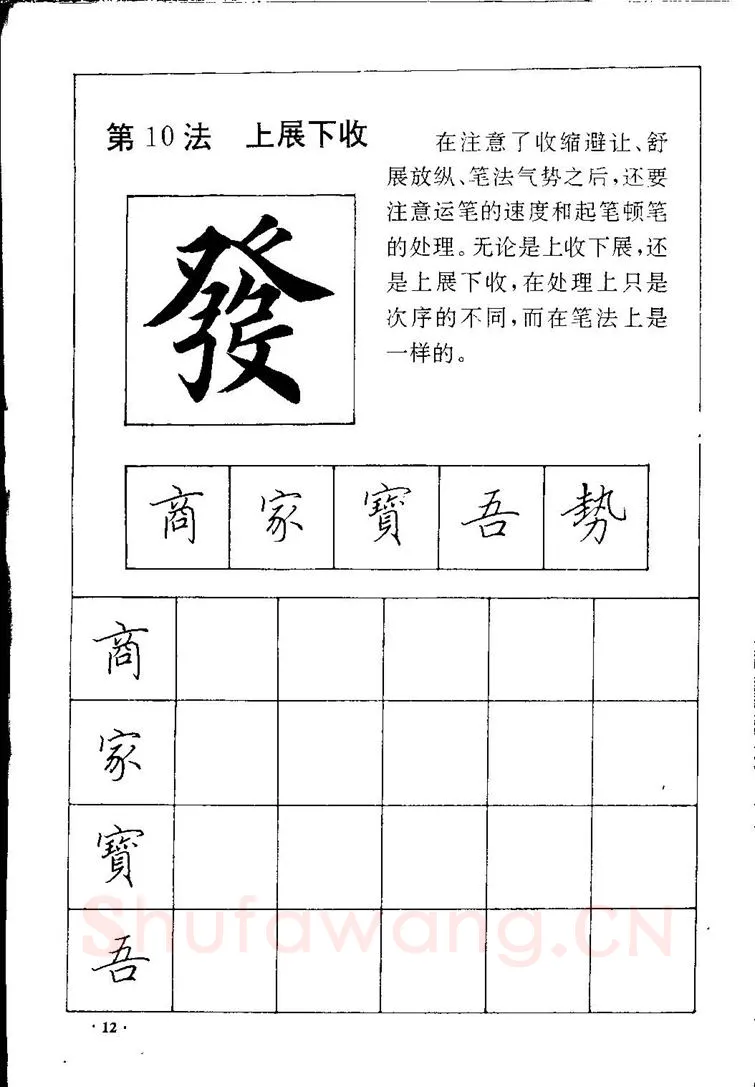 第10法 上展下收
在注意了收缩避让、舒
展放纵、笔法气势之后,还要
注意运笔的速度和起笔顿笔
的处理。无论是上收下展,还
是上展下收,在处理上只是
次序的不同,而在笔法上是
一样的。
發
商 家 寶 吾 勢
商
家
寶
吾
Shufawang.CN
·12·